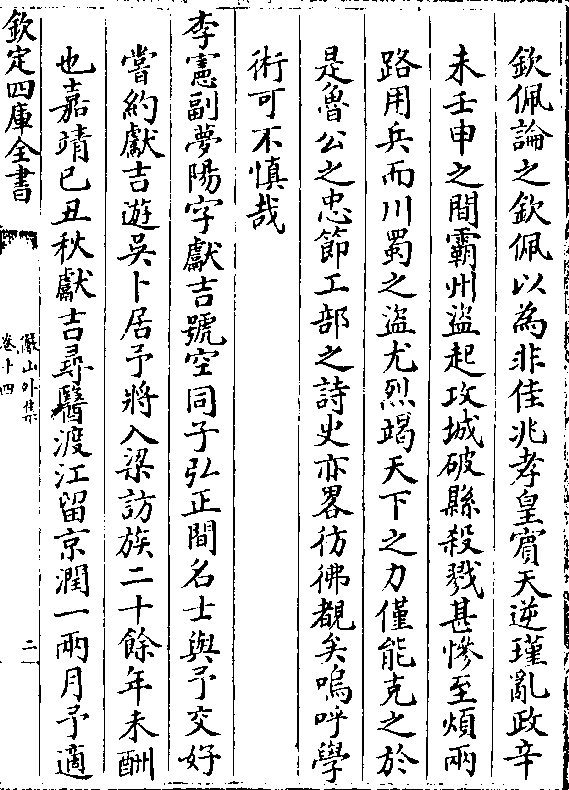 欽佩論之欽佩以為非佳兆孝皇賓天逆瑾亂政辛
未壬申之間霸州盜起攻城破縣殺戮甚慘至煩兩
路用兵而川蜀之盜尤烈竭天下之力僅能克之於
是魯公之忠節工部之詩史亦畧彷彿覩矣嗚呼學
術可不慎哉
李憲副夢陽字獻吉號空同子弘正間名士與予交好
嘗約獻吉遊吳卜居予將入梁訪族二十餘年未酬
也嘉靖己丑秋獻吉尋醫渡江留京潤一兩月予適
欽定四庫全書
儼山外集
卷十四
二